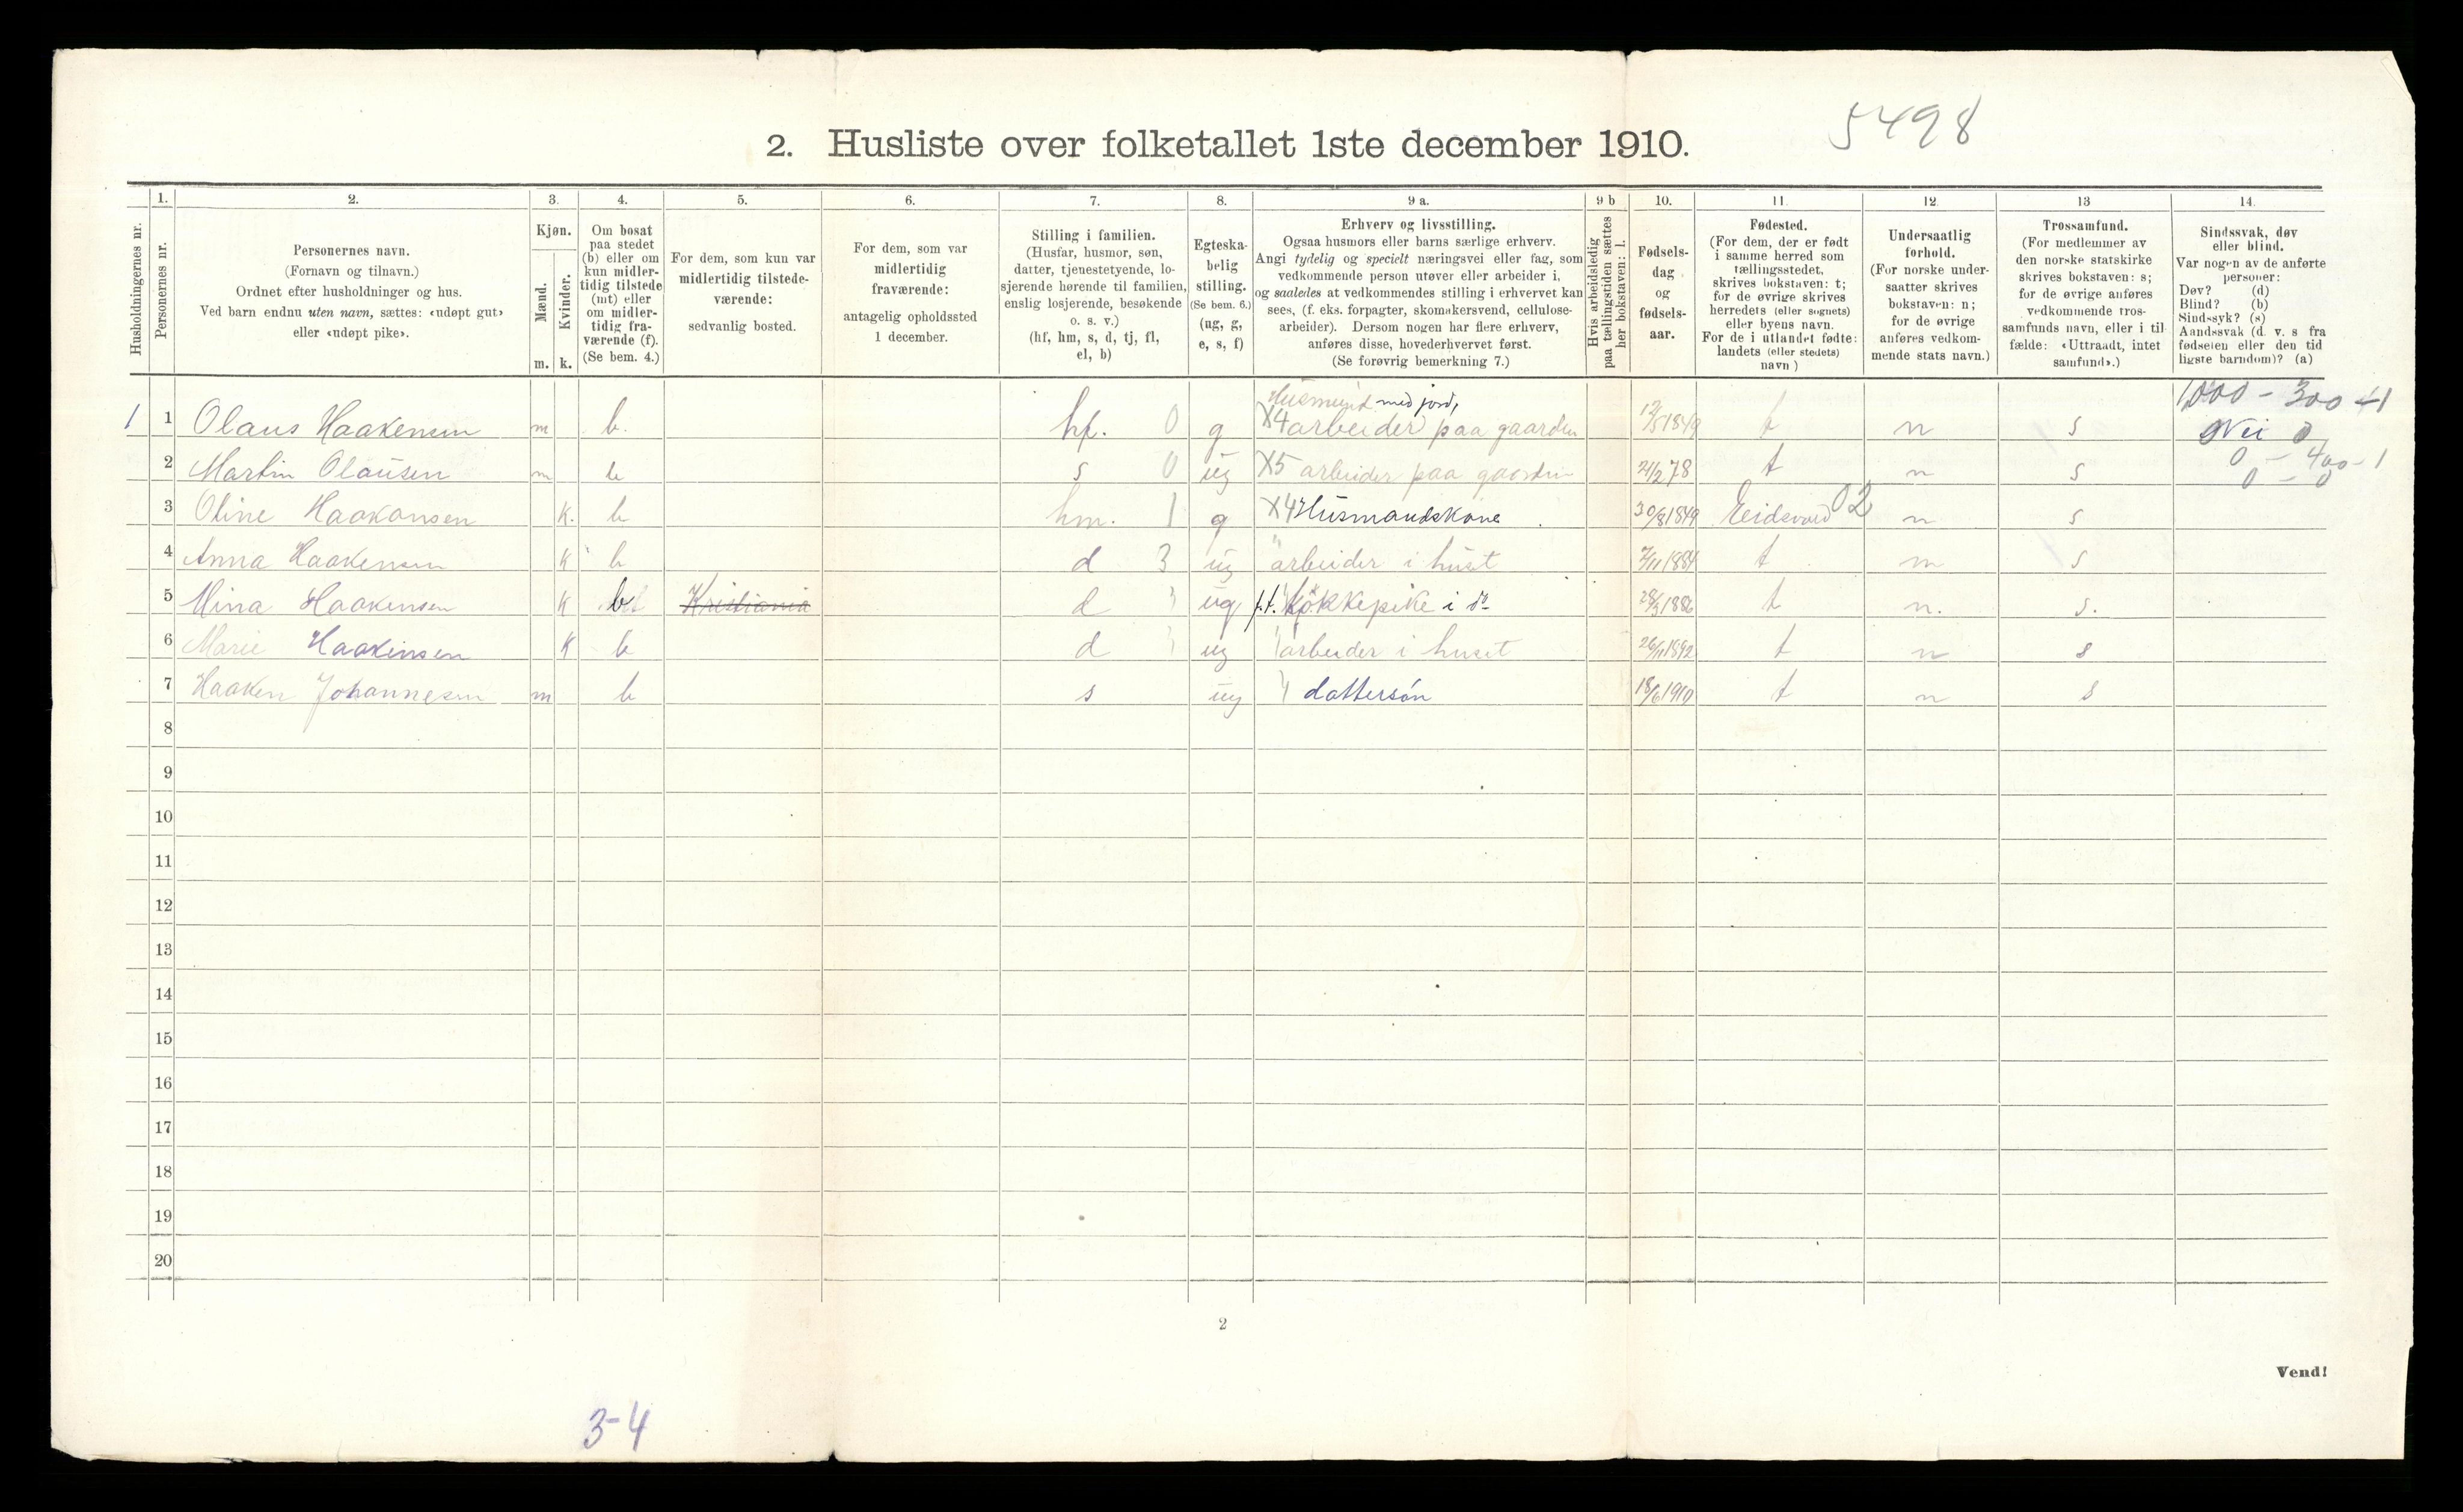 5498
2. Husliste over folketallet 1ste december 1910.
Husholdningernes nr.
1.
Personernes nr.
2.
Personernes navn.
(Fornavn og tilnavn.)
Ordnet efter husholdninger og hus.
Ved barn endnu uten navn, sættes: «udøpt gut»
eller «udøpt pike».
3.
Kjøn.
Mænd.
m.
Kvinder.
k.
4.
Om bosat
paa stedet
(b) eller om
kun midler-
tidig tilstede
(mt) eller
om midler-
tidig fra-
værende (f).
(Se bem. 4.)
5.
For dem, som kun var
midlertidig tilstede-
værende:
sedvanlig bosted.
6.
For dem, som var
midlertidig
fraværende:
antagelig opholdssted
1 december.
7.
Stilling i familien.
(Husfar, husmor, søn,
datter, tjenestetyende, lo-
sjerende hørende til familien,
enslig losjerende, besøkende
o. s. v.)
(hf, hm, s, d, tj, fl,
el, b)
8.
Egteska-
belig
stilling.
(Se bem. 6.)
(ug, g,
e, s, f)
9 a.
Erhverv og livsstilling.
Ogsaa husmors eller barns særlige erhverv.
Angi tydelig og specielt næringsvei eller fag, som
vedkommende person utøver eller arbeider i,
og saaledes at vedkommendes stilling i erhvervet kan
sees, (f. eks. forpagter, skomakersvend, cellulose-
arbeider). Dersom nogen har flere erhverv,
anføres disse, hovederhvervet først.
(Se forøvrig bemerkning 7.)
9 b
Hvis arbeidsledig
paa tællingstiden sættes
her bokstaven: l.
10.
Fødsels-
dag
og
fødsels-
aar.
11.
Fødested.
(For dem, der er født
i samme herred som
tællingsstedet,
skrives bokstaven: t;
for de øvrige skrives
herredets (eller sognets)
eller byens navn.
For de i utlandet fødte:
landets (eller stedets)
navn )
12.
Undersaatlig
forhold.
(For norske under-
saatter skrives
bokstaven: n;
for de øvrige
anføres vedkom-
mende stats navn.)
13
Trossamfund.
(For medlemmer av
den norske statskirke
skrives bokstaven: s;
for de øvrige anføres
vedkommende tros-
samfunds navn, eller i til
fælde: «Uttraadt, intet
samfund».)
14.
Sindssvak, døv
eller blind.
Var nogen av de anførte
personer:
Døv? (d)
Blind? (b)
Sindssyk? (s)
Aandssvak (d. v. s fra
fødselen eller den tid
ligste barndom)? (a)
Husmand med jord, 1,000 - 300 - 1
1 1 Olaus Haakensen m b. hf. 0 g X4 arbeider paa gaarden 12/5 1849 t n s Nei 0
2 Martin Olausen m b s 0 ug X5 arbeider paa gaarden 21/2 78 t n s 0 - 400 - 1
0 - 0
3 Oline Haakonsen k. b hm. 1 g X4 Husmandskone 30/8 1849 Eidsvold 02 n s
4 Anna Haakensen k b d 3 ug " arbeider i huset 7/11 1884 t n s
5 Mina Haakensen k b Kristiania d ug p.t. kokkepike i do 28/3 1886 t n. s.
6 Marie Haakensen k b d ug arbeider i huset 26/11 1892 t n s
7 Haaken Johannesen m b s ug dattersøn 18/6 1910 t n s
8
9
10
11
12
13
14
15
16
17
18
19
20
2
Vend!
3-4